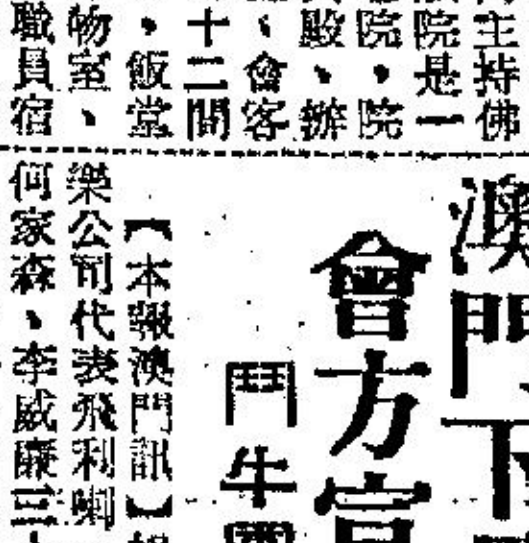 主持佛
院是一
院，院
殿、辦
、會客
十二間
，飯堂
物室、
職員宿
澳門下
會方官
鬥牛團
【本報澳門訊】
樂公司代表飛利喇
何家森、李威廉三